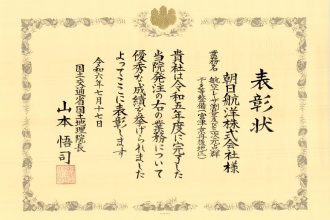 表彰状
朝日航洋株式会社様
業務名 航空レーザ測量及び三次元点群
データ等整備(富津・京丹後地区)
貴社は令和五年度に完了した
当院発注の右の業務について
優秀な成績を挙げられました
よってここに表彰します
令和六年七月十七日
国土交通省国土地理院長
山本悟司